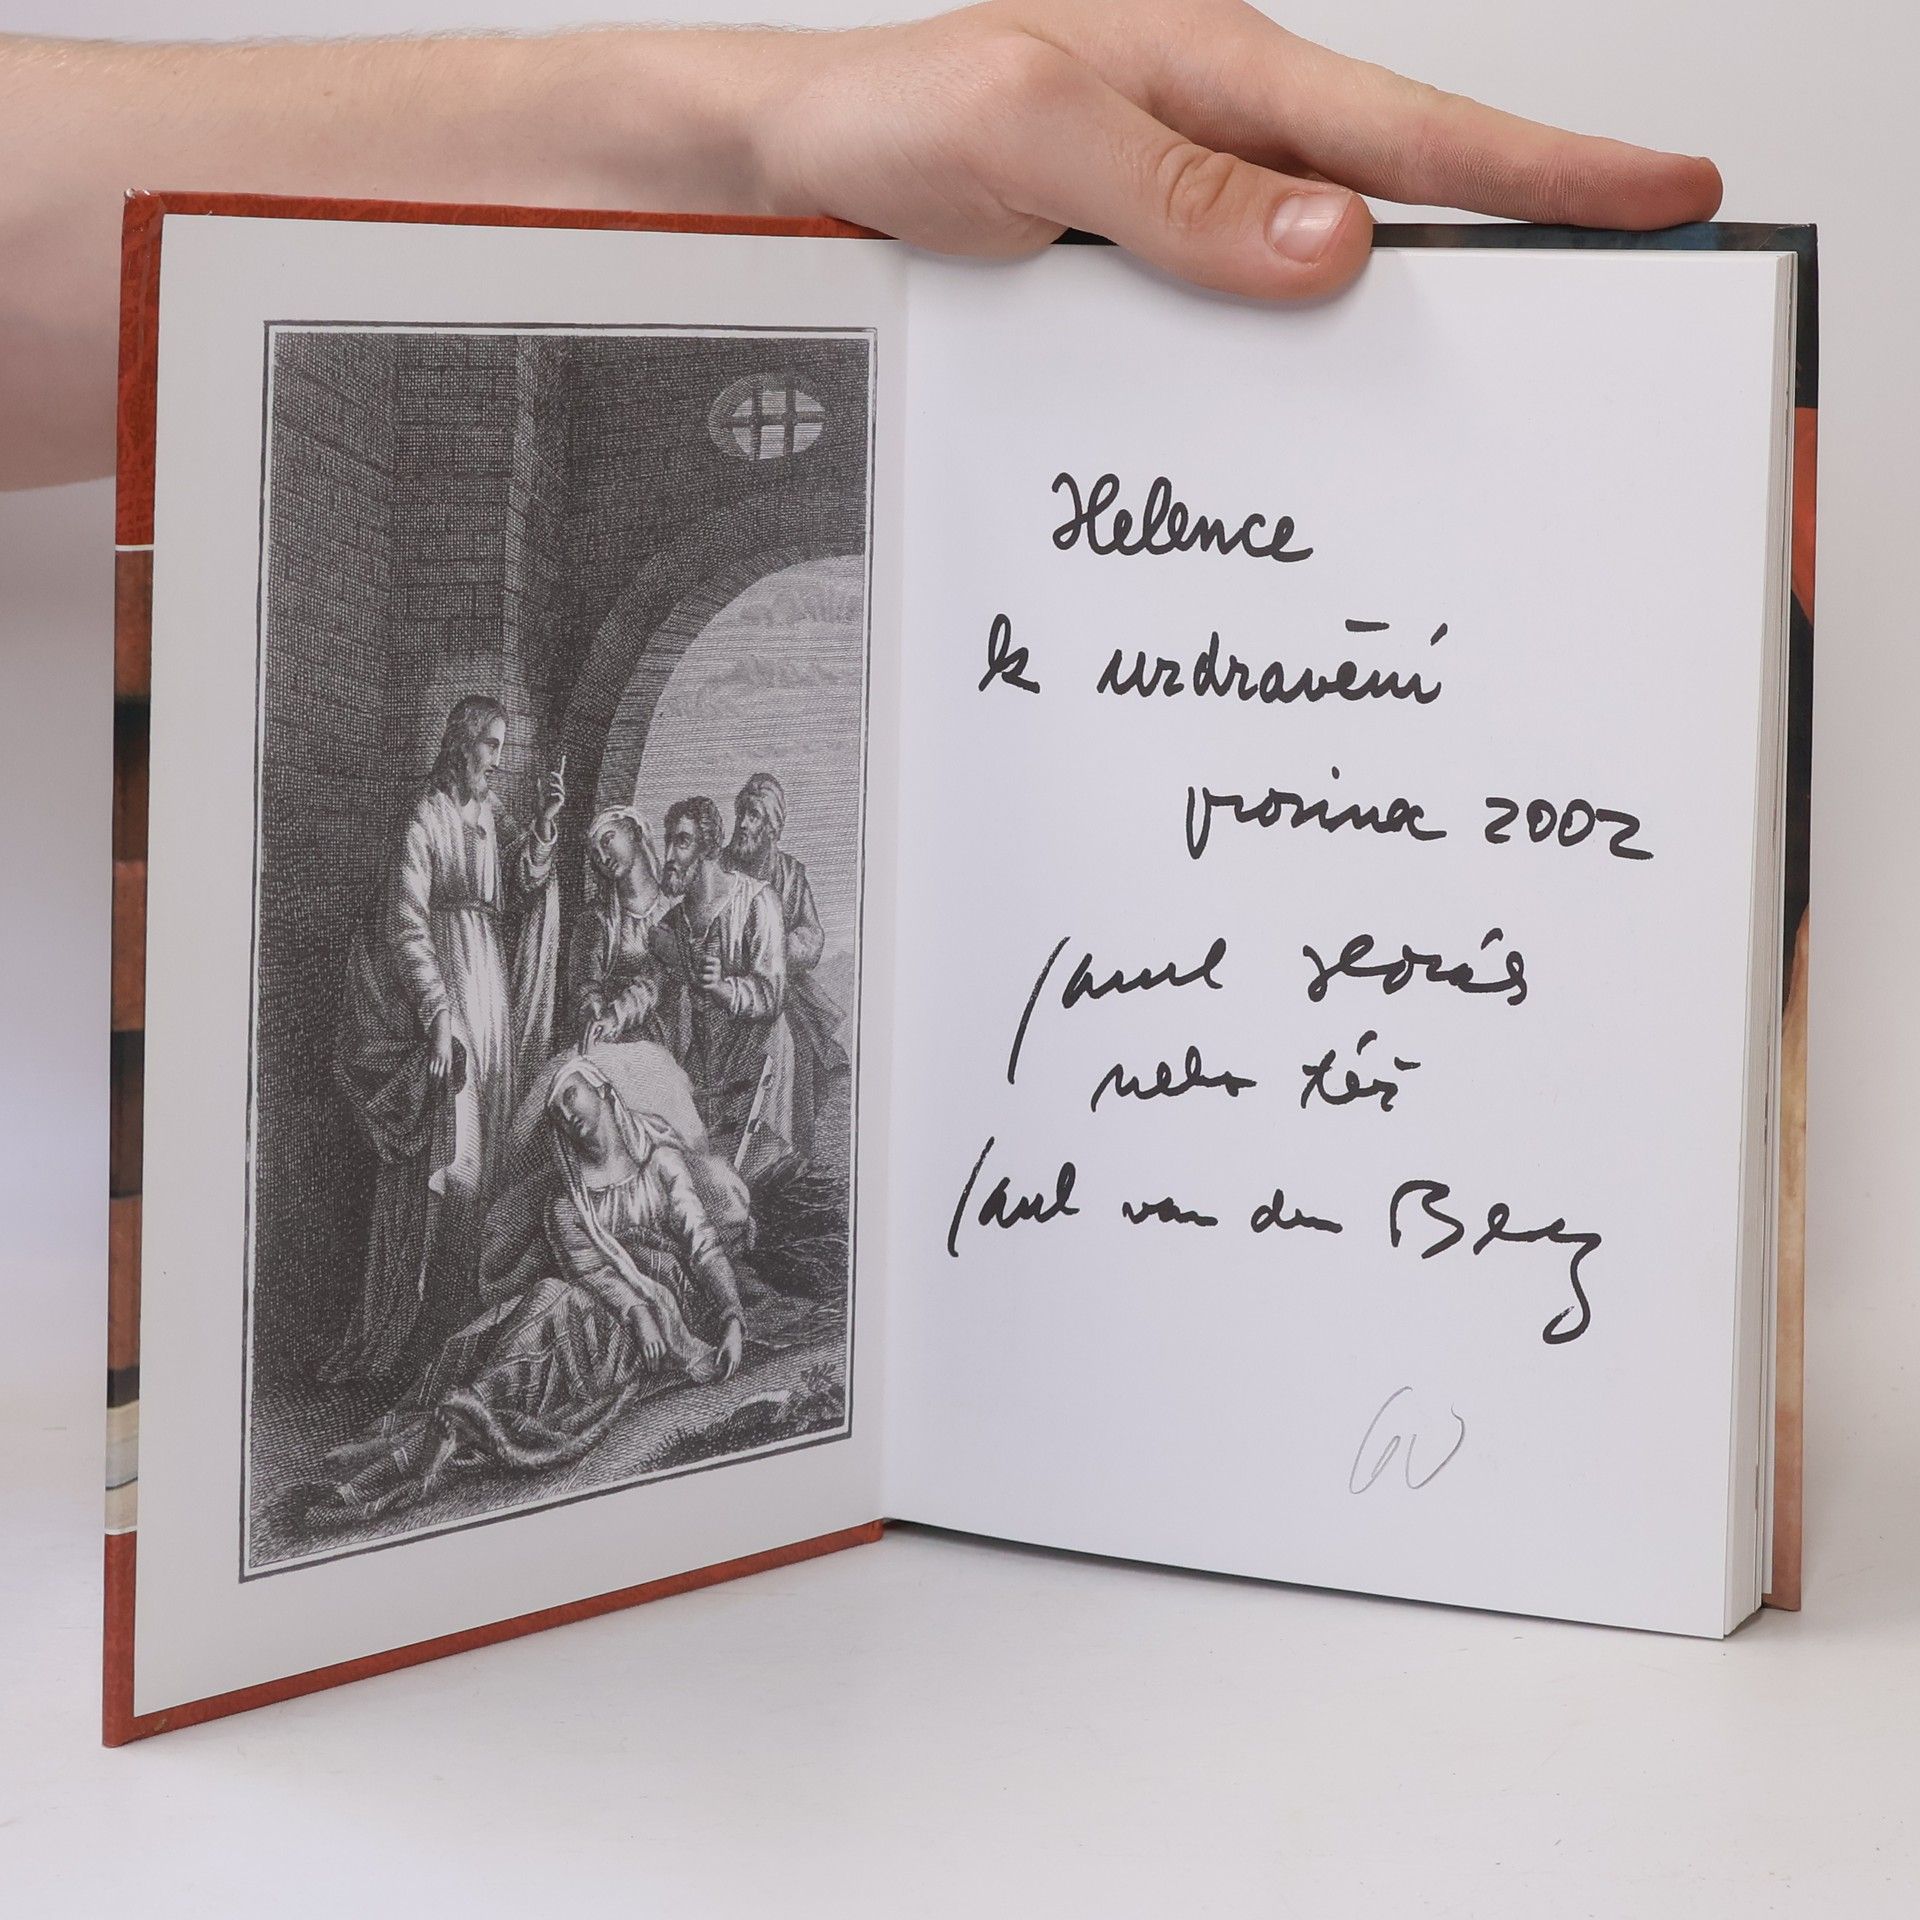 Helence
k uzdravění
prosinec 2002
Pavel Horák
nebo též
Paul van den Berg